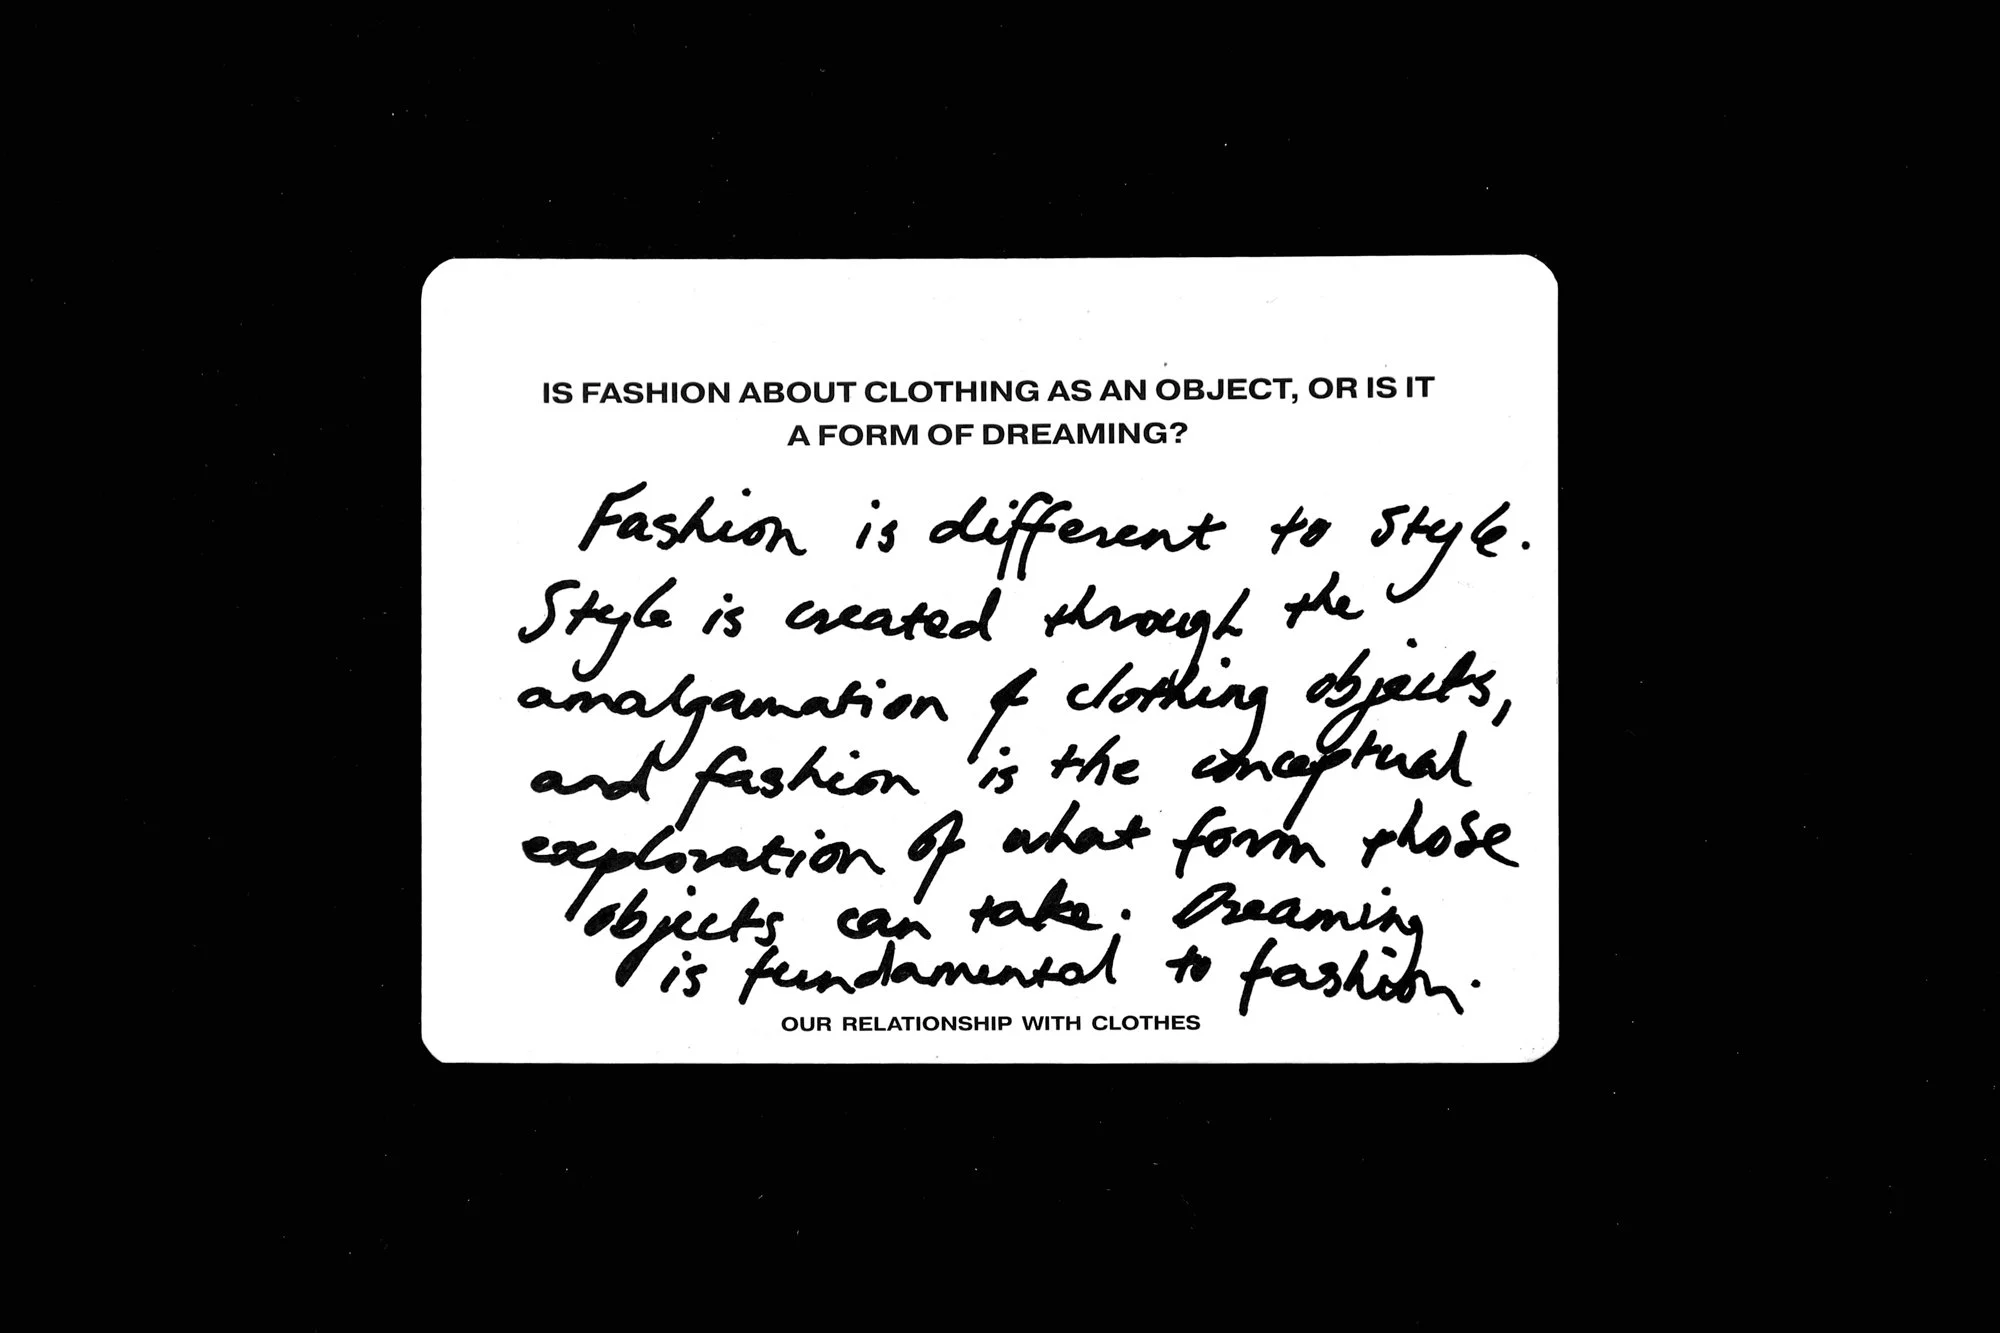 IS FASHION ABOUT CLOTHING AS AN OBJECT, OR IS IT
A FORM OF DREAMING?
Fashion is different to style.
Style is created through the
amalgamation of clothing objects,
and fashion is the conceptual
exploration of what form those
objects can take. Dreaming
is fundamental to fashion.
OUR RELATIONSHIP WITH CLOTHES